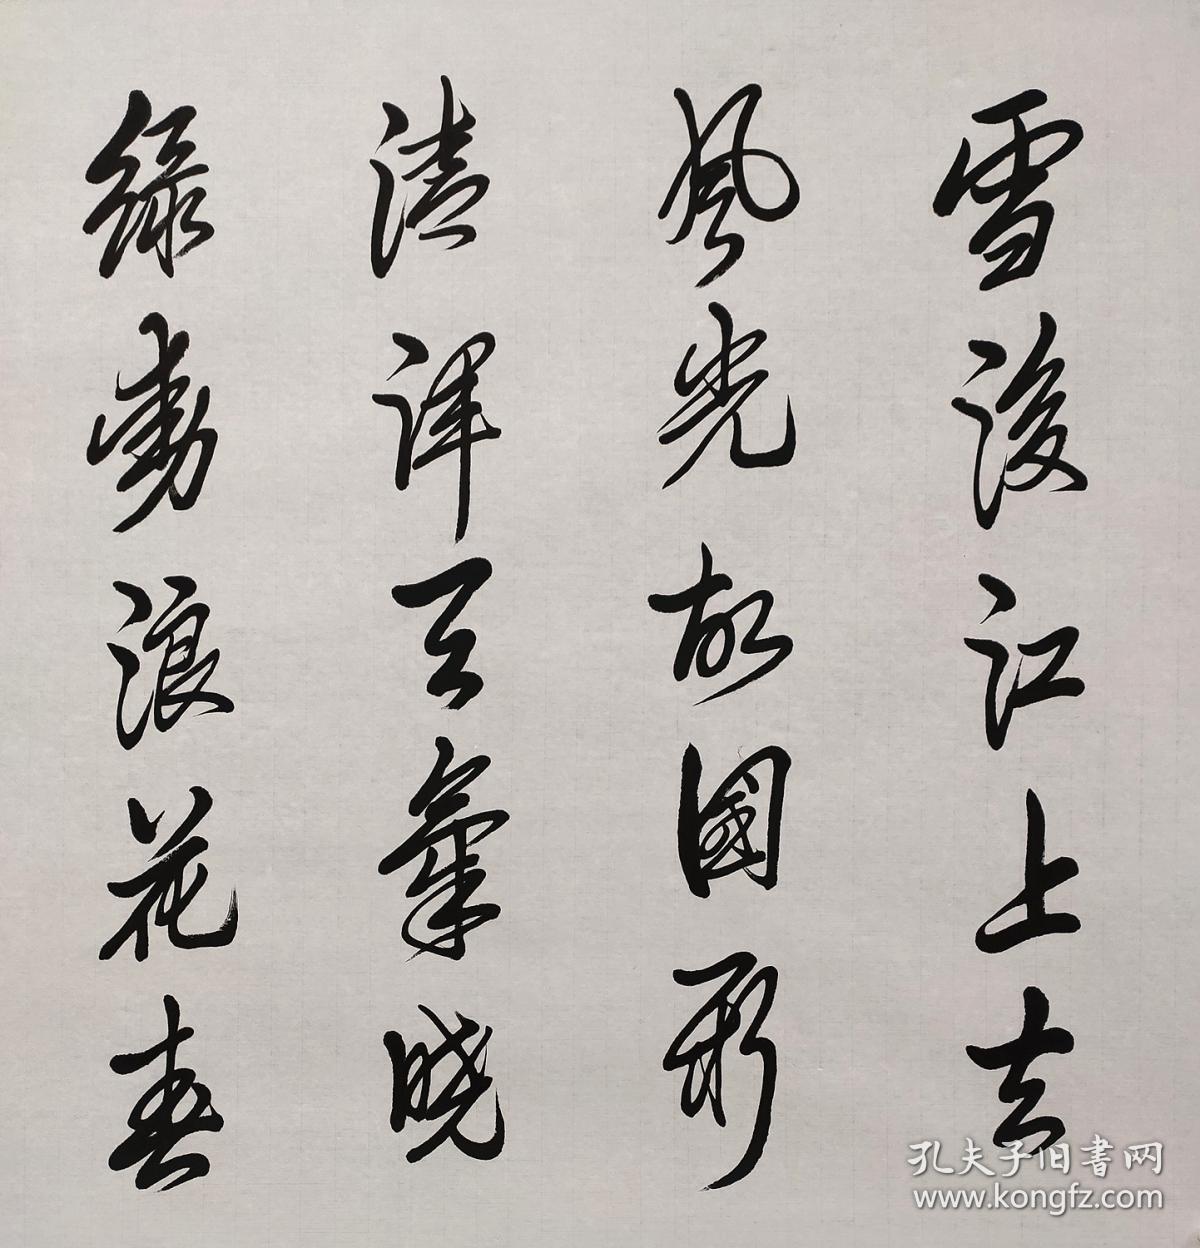 雪後江上去
風光故國新
清渾天氣曉
綠動浪花春
孔夫子旧書网
www.kongfz.com